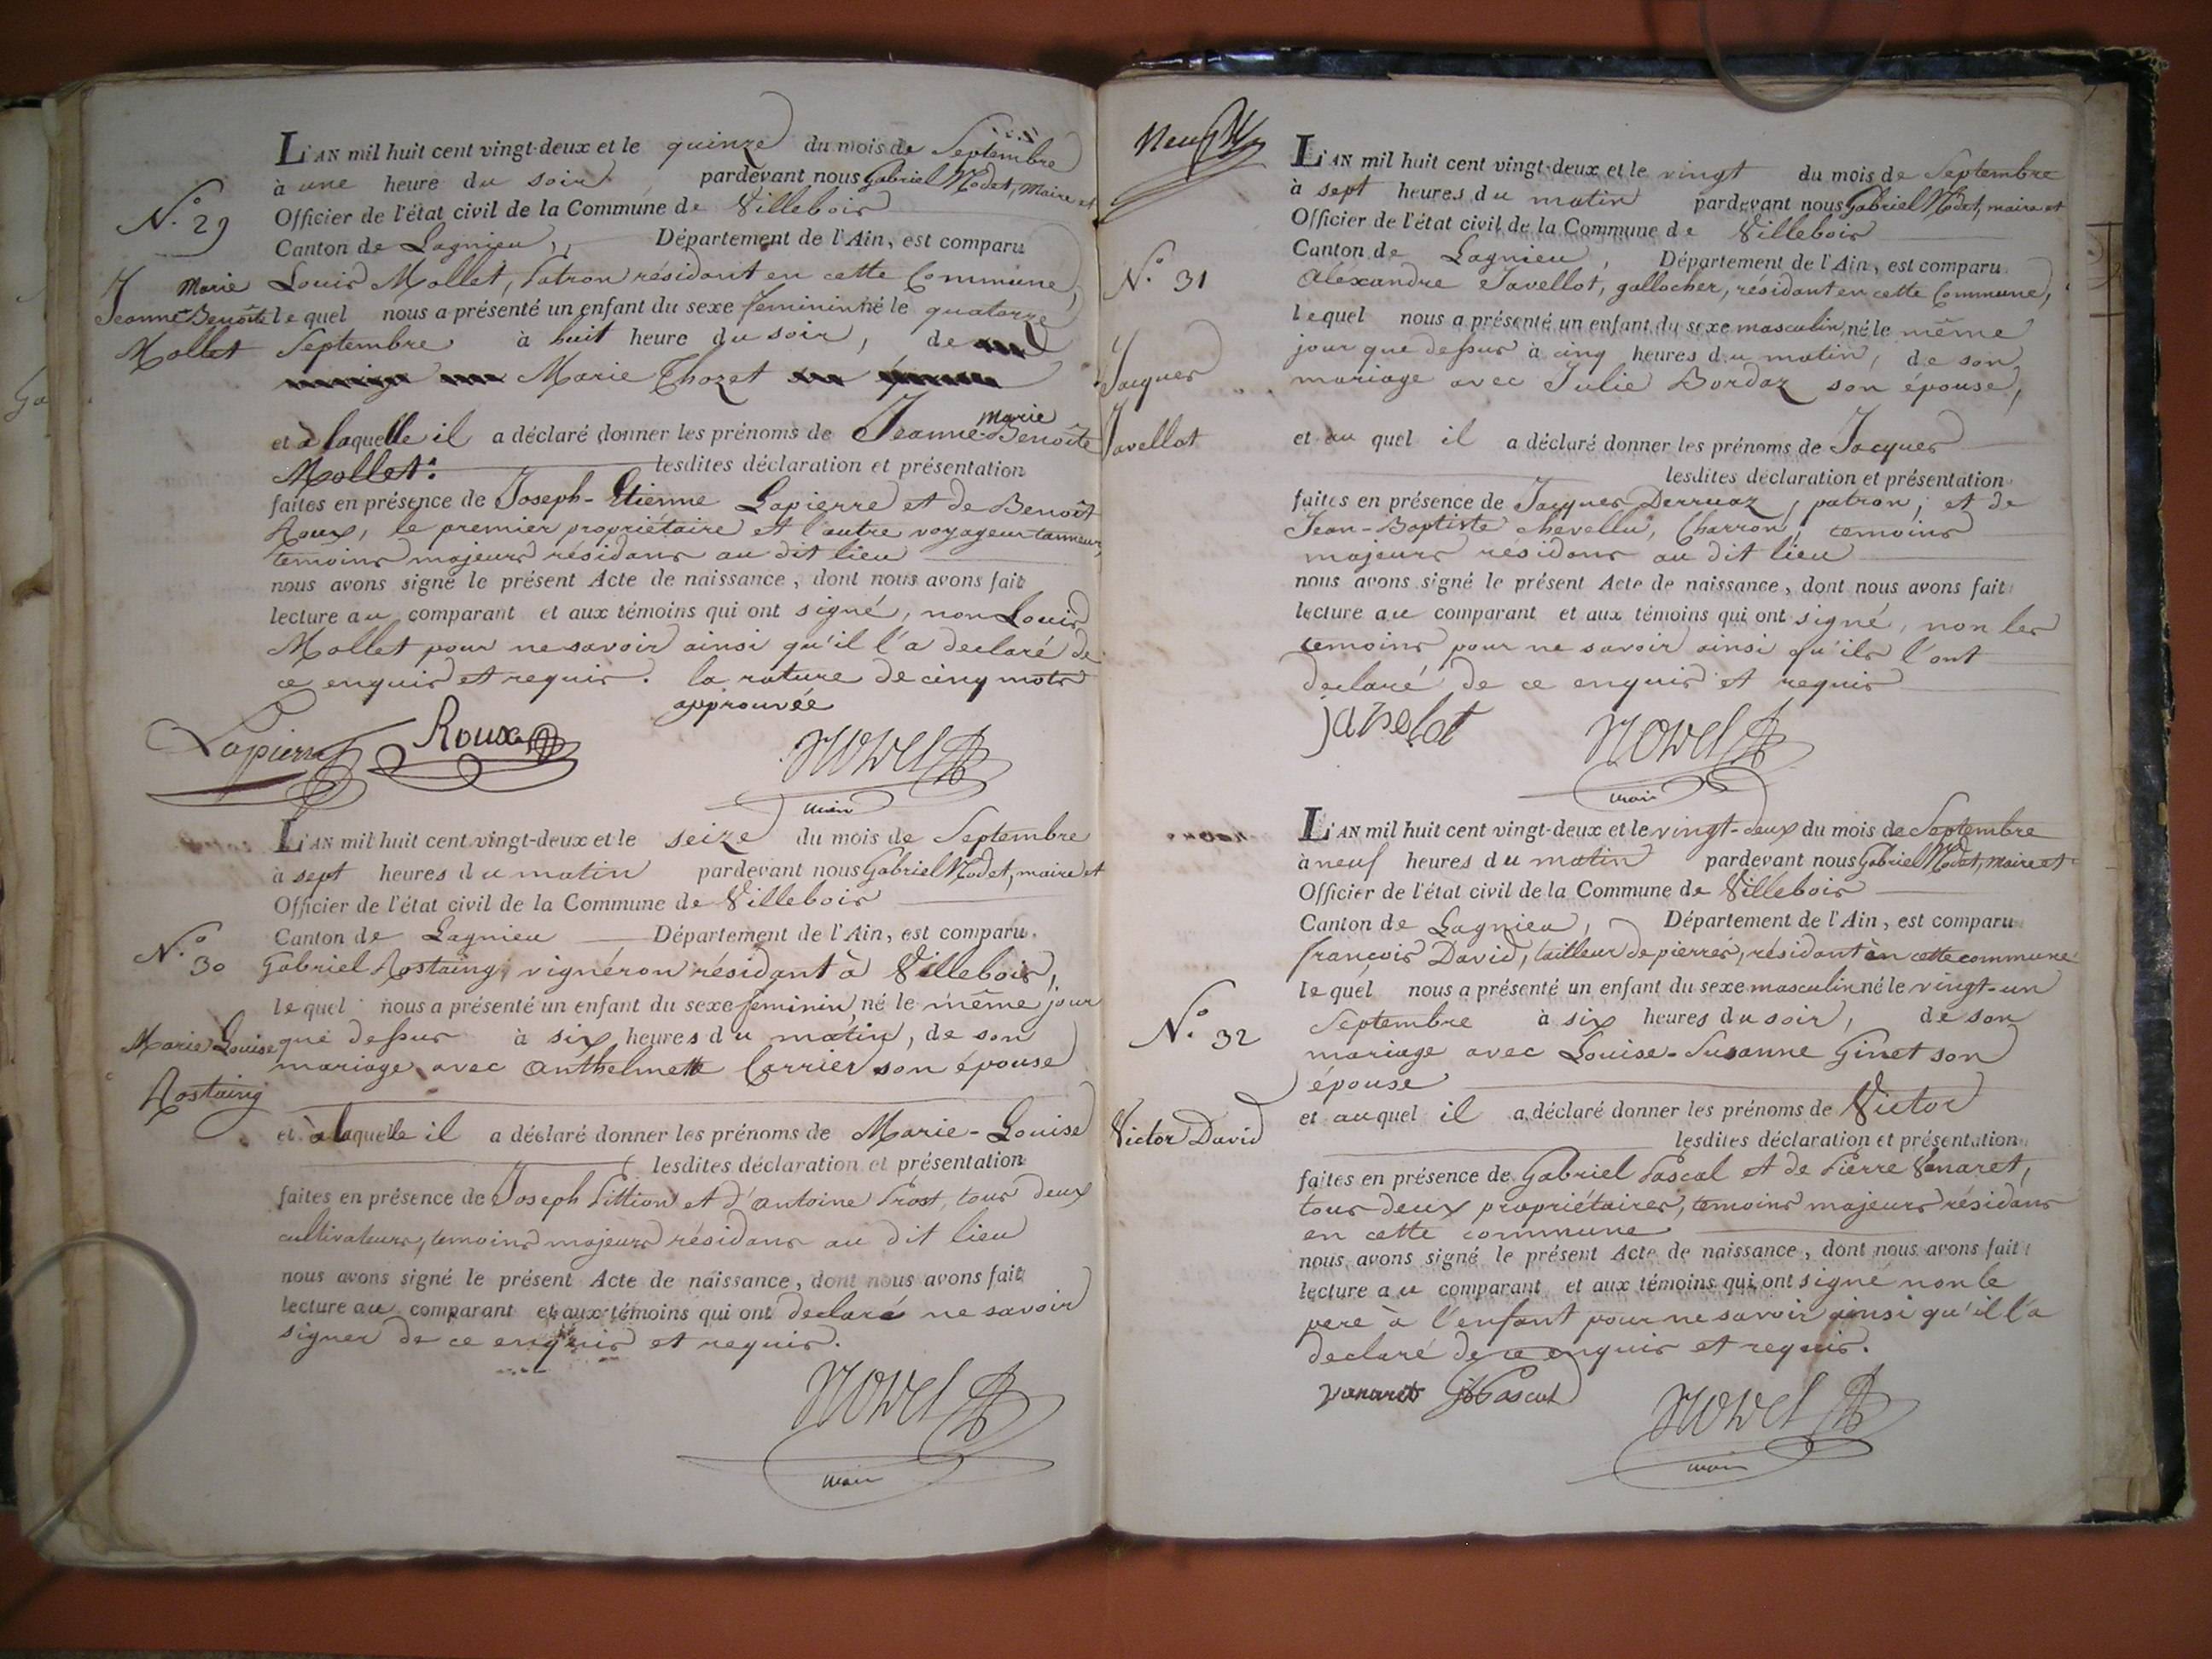 L'AN mil huit cent vingt-deux et le quinze du mois de Septembre
à une heure du soir pardevant nous Gabriel Modet, Maire et
Officier de l'état civil de la Commune de Villebois
N.° 29
Canton de Lagnieu, Département de l'Ain, est comparu
Louis Mollet, Patron résidant en cette Commune,
Marie
Jeanne Benoîte
Mollet
le quel nous a présenté un enfant du sexe feminin né le quatorze
Septembre à huit heure du soir, de
Marie Thozet
marie
et à laquelle il a déclaré donner les prénoms de Jeanne-Benoîte
Mollet. lesdites déclaration et présentation
faites en présence de Joseph-Etienne Lapierre et de Benoît
Roux, le premier propriétaire et l'autre voyageur tanneur,
temoins majeurs résidans au dit lieu
nous avons signé le présent Acte de naissance, dont nous avons fait
lecture au comparant et aux témoins qui ont signé, non Louis
Mollet pour ne savoir ainsi qu'il l'a declaré de
ce enquis et requis. la rature de cinq mots
approuvée
Lapierre Roux
maire
L'AN mil huit cent vingt-deux et le seize du mois de Septembre
à sept heures du matin pardevant nous Gabriel Modet, maire et
Officier de l'état civil de la Commune de Villebois
N.° 30
Canton de Lagnieu Département de l'Ain, est comparu
Gabriel Rostaing, vignéron résidant à Villebois,
le quel nous a présenté un enfant du sexe feminin, né le même jour
Marie Louise
Rostaing
que dessus à six heures du matin, de son
mariage avec Anthelmette Carrier son épouse
et à laquelle il a déclaré donner les prénoms de Marie-Louise
lesdites déclaration et présentation
faites en présence de Joseph Pittion et d'antoine Prost, tous deux
cultivateurs, temoins majeurs résidans au dit lieu
nous avons signé le présent Acte de naissance, dont nous avons fait
lecture au comparant et aux témoins qui ont declaré ne savoir
signer de ce enquis et requis.
maire
Neuf
L'AN mil huit cent vingt-deux et le vingt du mois de Septembre
à sept heures du matin pardevant nous Gabriel Modet, maire et
Officier de l'état civil de la Commune de Villebois
N.° 31
Canton de Lagnieu, Département de l'Ain, est comparu
Aléxandre Javellot, gallocher, résidant en cette Commune,
lequel nous a présenté un enfant du sexe masculin, né le même
Jacques
Javellot
jour que dessus à cinq heures du matin, de son
mariage avec Julie Bordaz son épouse,
et au quel il a déclaré donner les prénoms de Jacques
lesdites déclaration et présentation
faites en présence de Jacques Derruaz, patron, et de
Jean-Baptiste chevellu, Charron, temoins
majeurs residans au dit lieu
nous avons signé le présent Acte de naissance, dont nous avons fait
lecture au comparant et aux témoins qui ont signé, non les
temoins pour ne savoir ainsi qu'ils l'ont
declaré de ce enquis et requis
javelot
maire
L'AN mil huit cent vingt-deux et le vingt-deux du mois de Septembre
à neuf heures du matin pardevant nous Gabriel Modet, maire et
Officier de l'état civil de la Commune de Villebois
Canton de Lagnieu, Département de l'Ain, est comparu
françois David, tailleur de pierres, résidant en cette commune
le quel nous a présenté un enfant du sexe masculin né le vingt-un
N.° 32
Septembre à six heures du soir, de son
mariage avec Louise-Susanne Ginet son
épouse
Victor David
et auquel il a déclaré donner les prénoms de Victor
lesdites déclaration et présentation
faites en présence de Gabriel Pascal et de Pierre Vanaret,
tous deux propriétaires, temoins majeurs résidans
en cette commune
nous avons signé le présent Acte de naissance, dont nous avons fait
lecture au comparant et aux témoins qui ont signé non le
pere à l'enfant pour ne savoir ainsi qu'il l'a
declaré de ce enquis et requis.
vanaret Pascal
maire